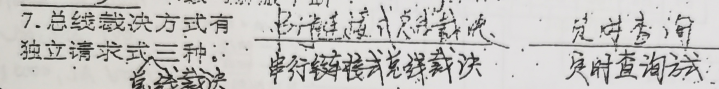 7.总线裁决方式有 串行链接式总线裁决 定时查询
独立请求式三种。 串行链接式总线裁决 定时查询方式
总线裁决